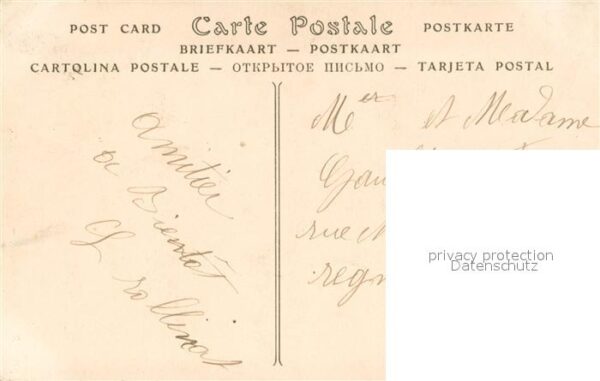 POST CARD Carte Postale POSTKARTE
BRIEFKAART — POSTKAART
CARTOLINA POSTALE — ОТКРЫТОЕ ПИСЬМО — TARJETA POSTAL
amitiés
a Bientôt
G rollinat
Mer et Madame
Gau
rue
regn
privacy protection
Datenschutz